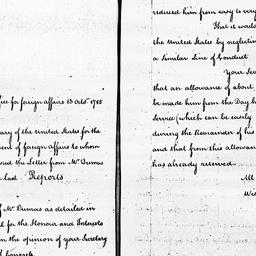 fice for foreign affairs 13 Octr 1785
ary of the United States for the
ent of foreign Affairs to whom
red the Letter from Mr Dumas
last. Reports
f Mr Dumas as detailed in
l for the Honour and Interests
in the opinion of your Secretary
l honorable
reduced him from easy to very
That it would
the United States by neglecting
a Similar Line of Conduct
Your Sec
that an allowance of about
be made him from the Day he
Service (which can be easily
during the Remainder of his
and that from this allowance
has already received.
All
Wis